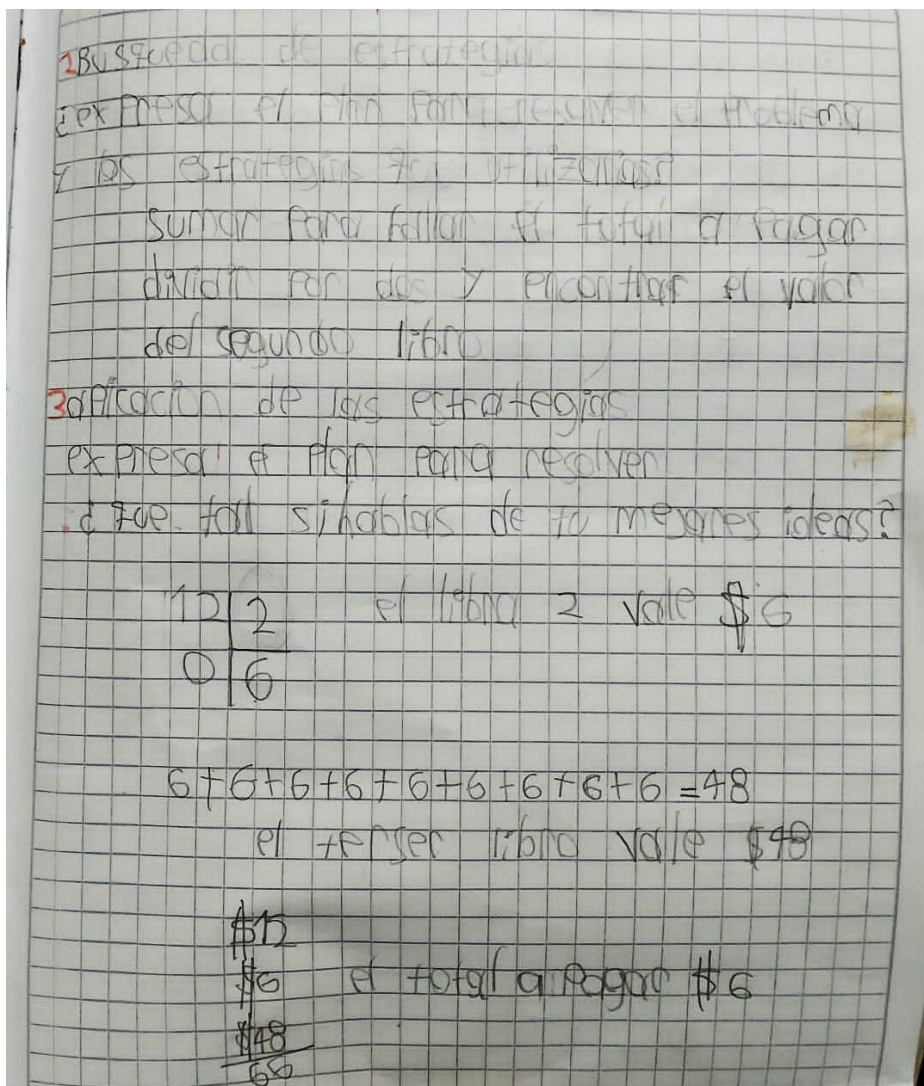 2Busqueda de estrategias
¿expresa el plan para resolver el problema
y las estrategias que utilizarias?
sumar para hallar el total a pagar
dividir por dos y encontrar el valor
del segundo libro
3aplicacion de las estrategias
expresa el plan para resolver
¿que tall sihablas de tu mejores ideas?
12 2 el libro 2 vale $6
0 6
6+6+6+6+6+6+6+6+6=48
el terser libro vale $48
$12
$6 el total a pagar $6
$48